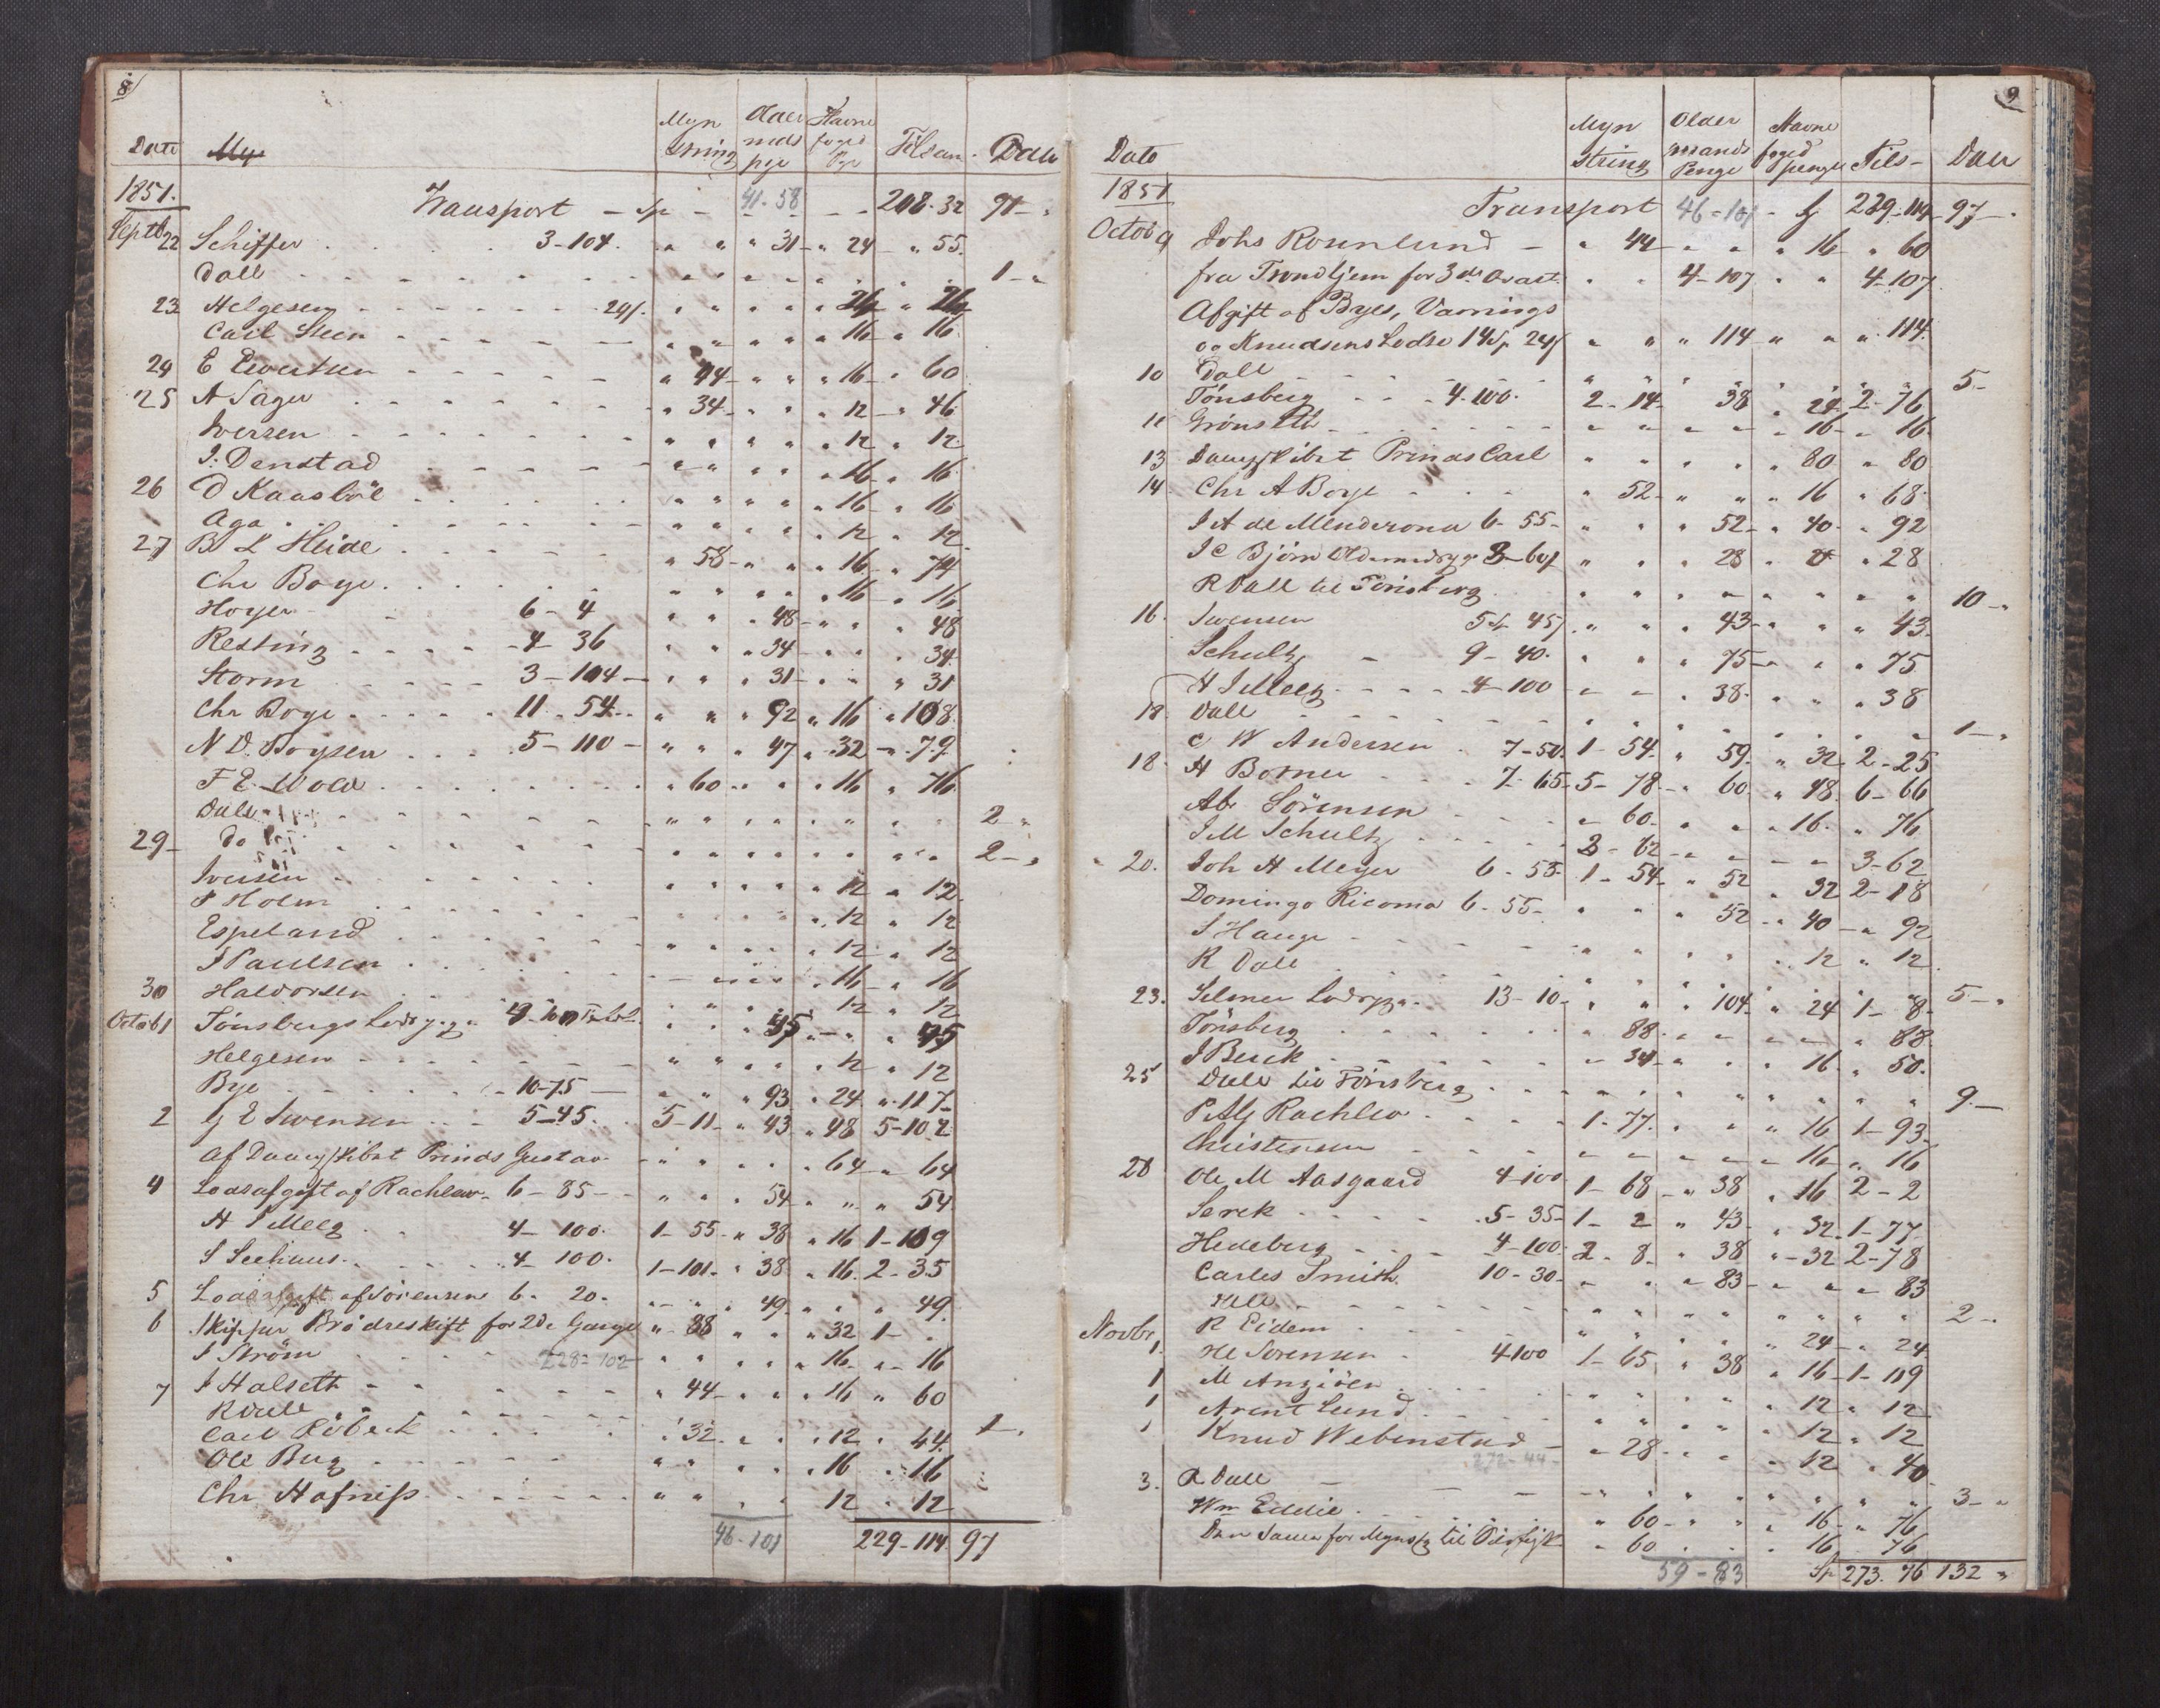 8
Dato My Myn string Olde mds pge Havne foged Pge Tilsam. Dall
1851.
Transport - Sp - 41-58 - - - 208-32 91-"
Septb 22 Schiffer 3-104. " " " 31 - " 24 - " 55.
Dall 1 - "
23 Helgesen 24/. " " " " " 24 " 24
Carl Steen " " " " " 16 " 16
24 E Evertsen " 44 - " " " 16 - " 60
25 A Sager " 34 - " " " 12 - " 46
Iversen " " " " " 12 " 12
I. Denstad " " " " " 16 " 16
26 D Kaasböl " " " " " 16 " 16
Aga " " " " " 12 " 12
27 B. L Heide " 58 - " " " 16 " 74
Chr Boye " " " " " 16 " 16
Hoyer 6-4 " " " 48 - " " " 48
Resting 4-36 " " " 34 - " " " 34
Storm 3-104 - " " " 31 - " " " 31
Chr Boye 11-54 " " " 92 " 16 " 108.
N D. Boysen 5-110 - " " " 47 " 32 - " 79
F E. Wold " 60 " " " 16 " 76
Dall 2 "
29 - do 2 - "
Iversen " " " " " 12 " 12
P Holm " 12 " 12
Espeland " " " " " 12 " 12
I Paulsen " 16 " 16
30 Haldorsen " 12 " 12
Octob 1 Tönsbergs " " " 45 - " " 45
Helgesen " " " " " 12 " 12
Bye 10-75 " " " 93 " 24 " 117
2 G E Svensen 5-45. 5-11 - " 43 " 48 5-102
Af Dampskibet Prinds Gustav " " " " " 64 " 64
4 Lodsafgift af Rachlew 6-85 - " " " 54 " " " 54
H I Meeg 4-100. 1-55 " 38 " 16 1-109
S Seehuus 4-100. 1-101 " 38 " 16 2-35
5 Lodsafgift af Sörensen 6-20. " " " 49 " " " 49
6 Skipper Brödreskift for 2de Gange " 88 " " " 32 1 - "
I Ström 228-102 " " " " " 16 " 16
7 I Halseth " 44 - " " " 16 " 60
R Dall 1 - "
Carl Röbeck " 32 " " " 12 " 44
Ole Berg " " " " " 16 " 16
Chr Hafniss " " " " 12 " 12
46-101 229-114 97
9
Dato Myn string Older mands Penge Havne foged penge Tils - Dall
1851
Transport 46-101 - 229-114 - 97 - "
Octob 9 Johs Rosenlund - " 44 - " " " 16 " 60
fra Trondhjem for 3de Qvart. " " 4-107 " " 4-107
Afgift af Byes, Varnings
og Knudsens Lodse 14 24/ " " " 114 " " " 114
10 Dall 5 -
Tönsberg 4-100. 2-14 - 38 " 24 2-76
11 Grönseth " " " " " 16 " 16
13 Dampskibet Prinds Carl " " " " " 80 " 80
14. Chr A Boye " 52 - " " " 16 " 68
I A de Menderona 6-55 - " " " 52 - " 40 " 92
I C Björn 3-60/ " " " 28 " " " 28
R Dall til Tönsberg 10 - "
16. Svensen 5-45/ " " " 43 - " " " 43
Schultz - 9-40. " " " 75 - " " " 75
H I Meeg 4-100 " " " 38 " " " 38
18. Dall 1 - "
C W Andersen 7-50. 1-54 - " 59 " 32 2-25
18. H Bomer 7-65 - 5-78 - " 60 " 48 6-66
Abr Sörensen " 60 - " " " 16 " 76
I M Schultz 3-62 - " " " " 3-62
20. Joh H Meyer 6-55 1-54 - " 52 " 32 2-18
Domingo Ricoma 6-55 - " " " 52 " 40 - " 92
S Hauge " " " " " 12 " 12
R Dall 5 - "
23. Selmer 13-10 - " " " 104 " 24 1-8
Tönsberg " 88 " " " " " 88
I Berck " 34 - " " " 16 " 50
25 Dall til Tönsberg 9 -
P Rachlew 1-77 " " " 16 1-93
Christensen " " " " " 16 " 16
28 Ole M Aasgaard 4-100 1-68 - " 38 " 16 2-2
Serck 5-35 - 1-2 " 43 " 32 1-77
Hedeberg 4-100. 2-8 - " 38 " 32 2-78
Carles Smith 10-30 - " " " 83 - " " " 83
2 - "
R Eidem " " " " " 24 " 24
Novbr 1. Sorensen 4-100 1-65 " 38 " 16 - 1-119
1 M Angiöen " " " " " 12 " 12
1 Arent Lund " " " " " 12 " 12
1 Knud Webenstad - " 28 - " " " 12 " 40
272-44
3. R Dall 3 - "
Wm Eddie " 60 - " " " 16 - " 76
Den Samme for " 60 " " " 16 76
59-83 Sp 273. 76 132 "